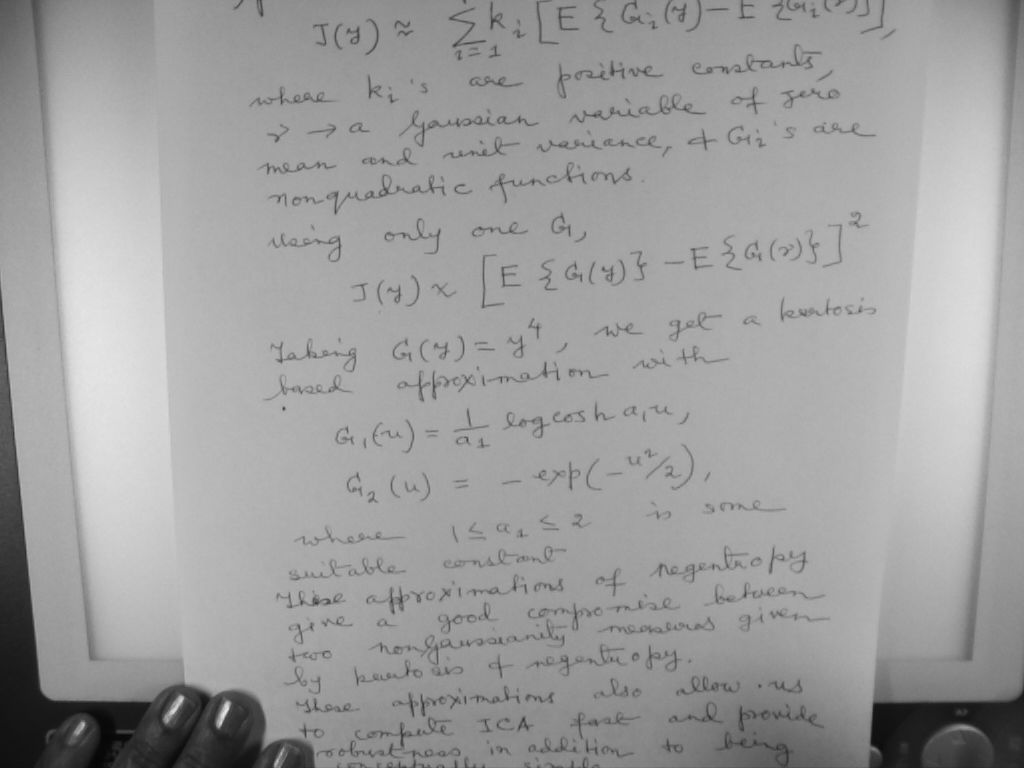 J(y) ≈ Σ_{i=1} k_i [E {G_i(y) − E {G_i(ν)}],
where k_i's are positive constants,
ν → a Gaussian variable of zero
mean and unit variance, & G_i's are
nonquadratic functions.
Using only one G,
J(y) ∝ [E {G(y)} − E {G(ν)}]²
Taking G(y) = y⁴, we get a kurtosis
based approximation with
G₁(u) = 1/a₁ log cosh a₁u,
G₂(u) = − exp(−u²/2),
where 1 ≤ a₁ ≤ 2 is some
suitable constant
These approximations of negentropy
give a good compromise between
two nongaussianity measures given
by kurtosis & negentropy.
These approximations also allow us
to compute ICA fast and provide
robustness in addition to being
conceptually simple